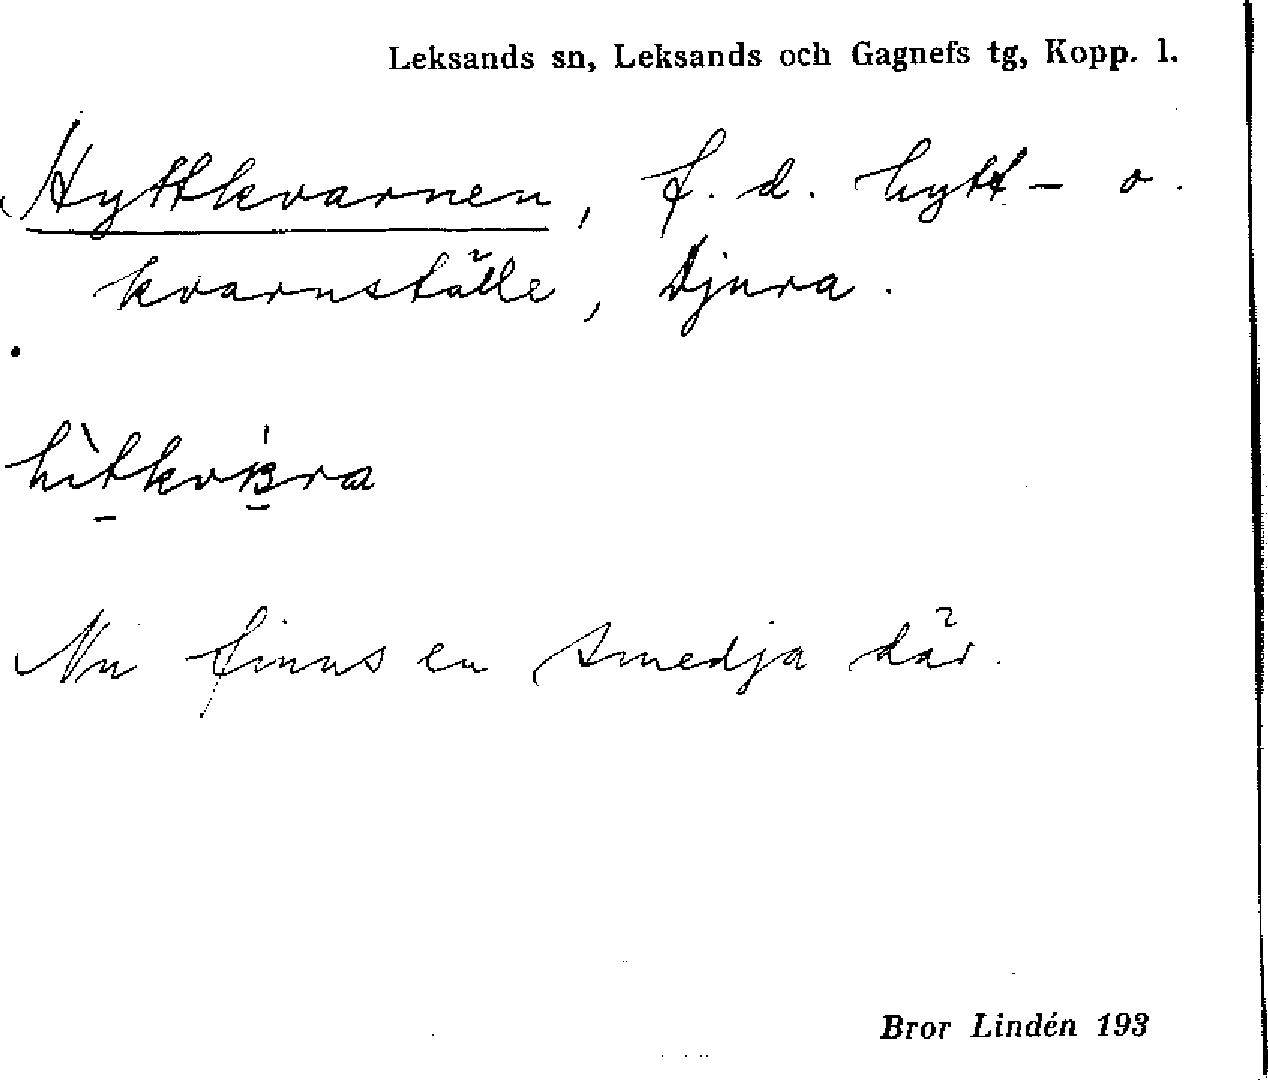 Leksands sn, Leksands och Gagnefs tg, Kopp. l.
Hyttkvarnen, f. d. hytt- o.
kvarnställe, Djura.
Nu finns en smedja där.
Bror Lindén 193